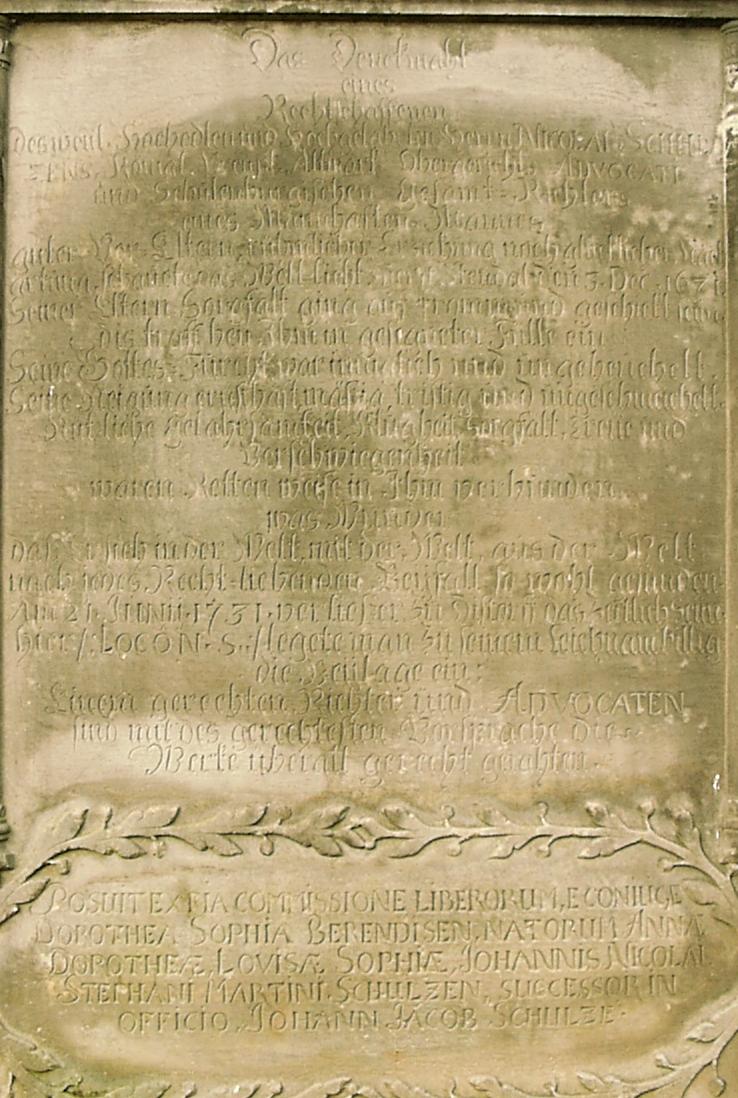 Das Denckmahl
eines
Rechtschaffenen
des weil. Hochedlen und Hochgelahrten Herrn NICOLAI SCHUL
ZENS, Königl. Preuß. Altmärk. Obergerichts ADVOCATI
und Schulenburgischen Gesamt-Richters
eines Mannes
guter Vor-Eltern, rühmlicher Erziehung noch
schauete das Welt-licht zu Stendal den 3. Dec. 167
Seiner Eltern Sorgfalt ging auf fromm und geschickt
dis traff bey Ihm in gesegneter Fülle ein
Seine Gottes-Furcht war innerlich und ungeheuchelt
Seine Neigung ernsthaft mäßig, lustig und ungeschmeichelt
Gelahrsamkeit, Klugheit, Sorgfalt, Treue und
Verschwiegenheit
waren Ketten weise in Ihm verbunden
was Wunder
daß Er sich in der Welt, mit der Welt, aus der Welt
nach jedes Recht-liebenden Beyfall so wohl gefunden
Am 21. JUNII. 1731. verließ er zu das zeitlich seyn
hier /: LOCO N. S. :/ legete man zu seinem Leichnam billig
die Beylage ein:
Einem gerechten Richter und ADVOCATEN
sind mit des gerechtesten Vorsprache die
Werke überall gerecht gerahten.
POSUIT EX PIA COMMISSIONE LIBERORUM, E CONIUGE
DOROTHEA SOPHIA BERENDISEN, NATORUM ANNÆ
DOROTHEÆ, LOVISÆ SOPHIÆ, JOHANNIS NICOLAI
STEPHANI MARTINI SCHULZEN, SUCCESSOR IN
OFFICIO, JOHANN JACOB SCHULZE.